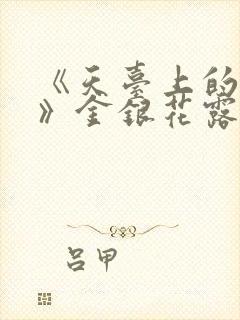 《天臺上的
》金銀花露
吕甲